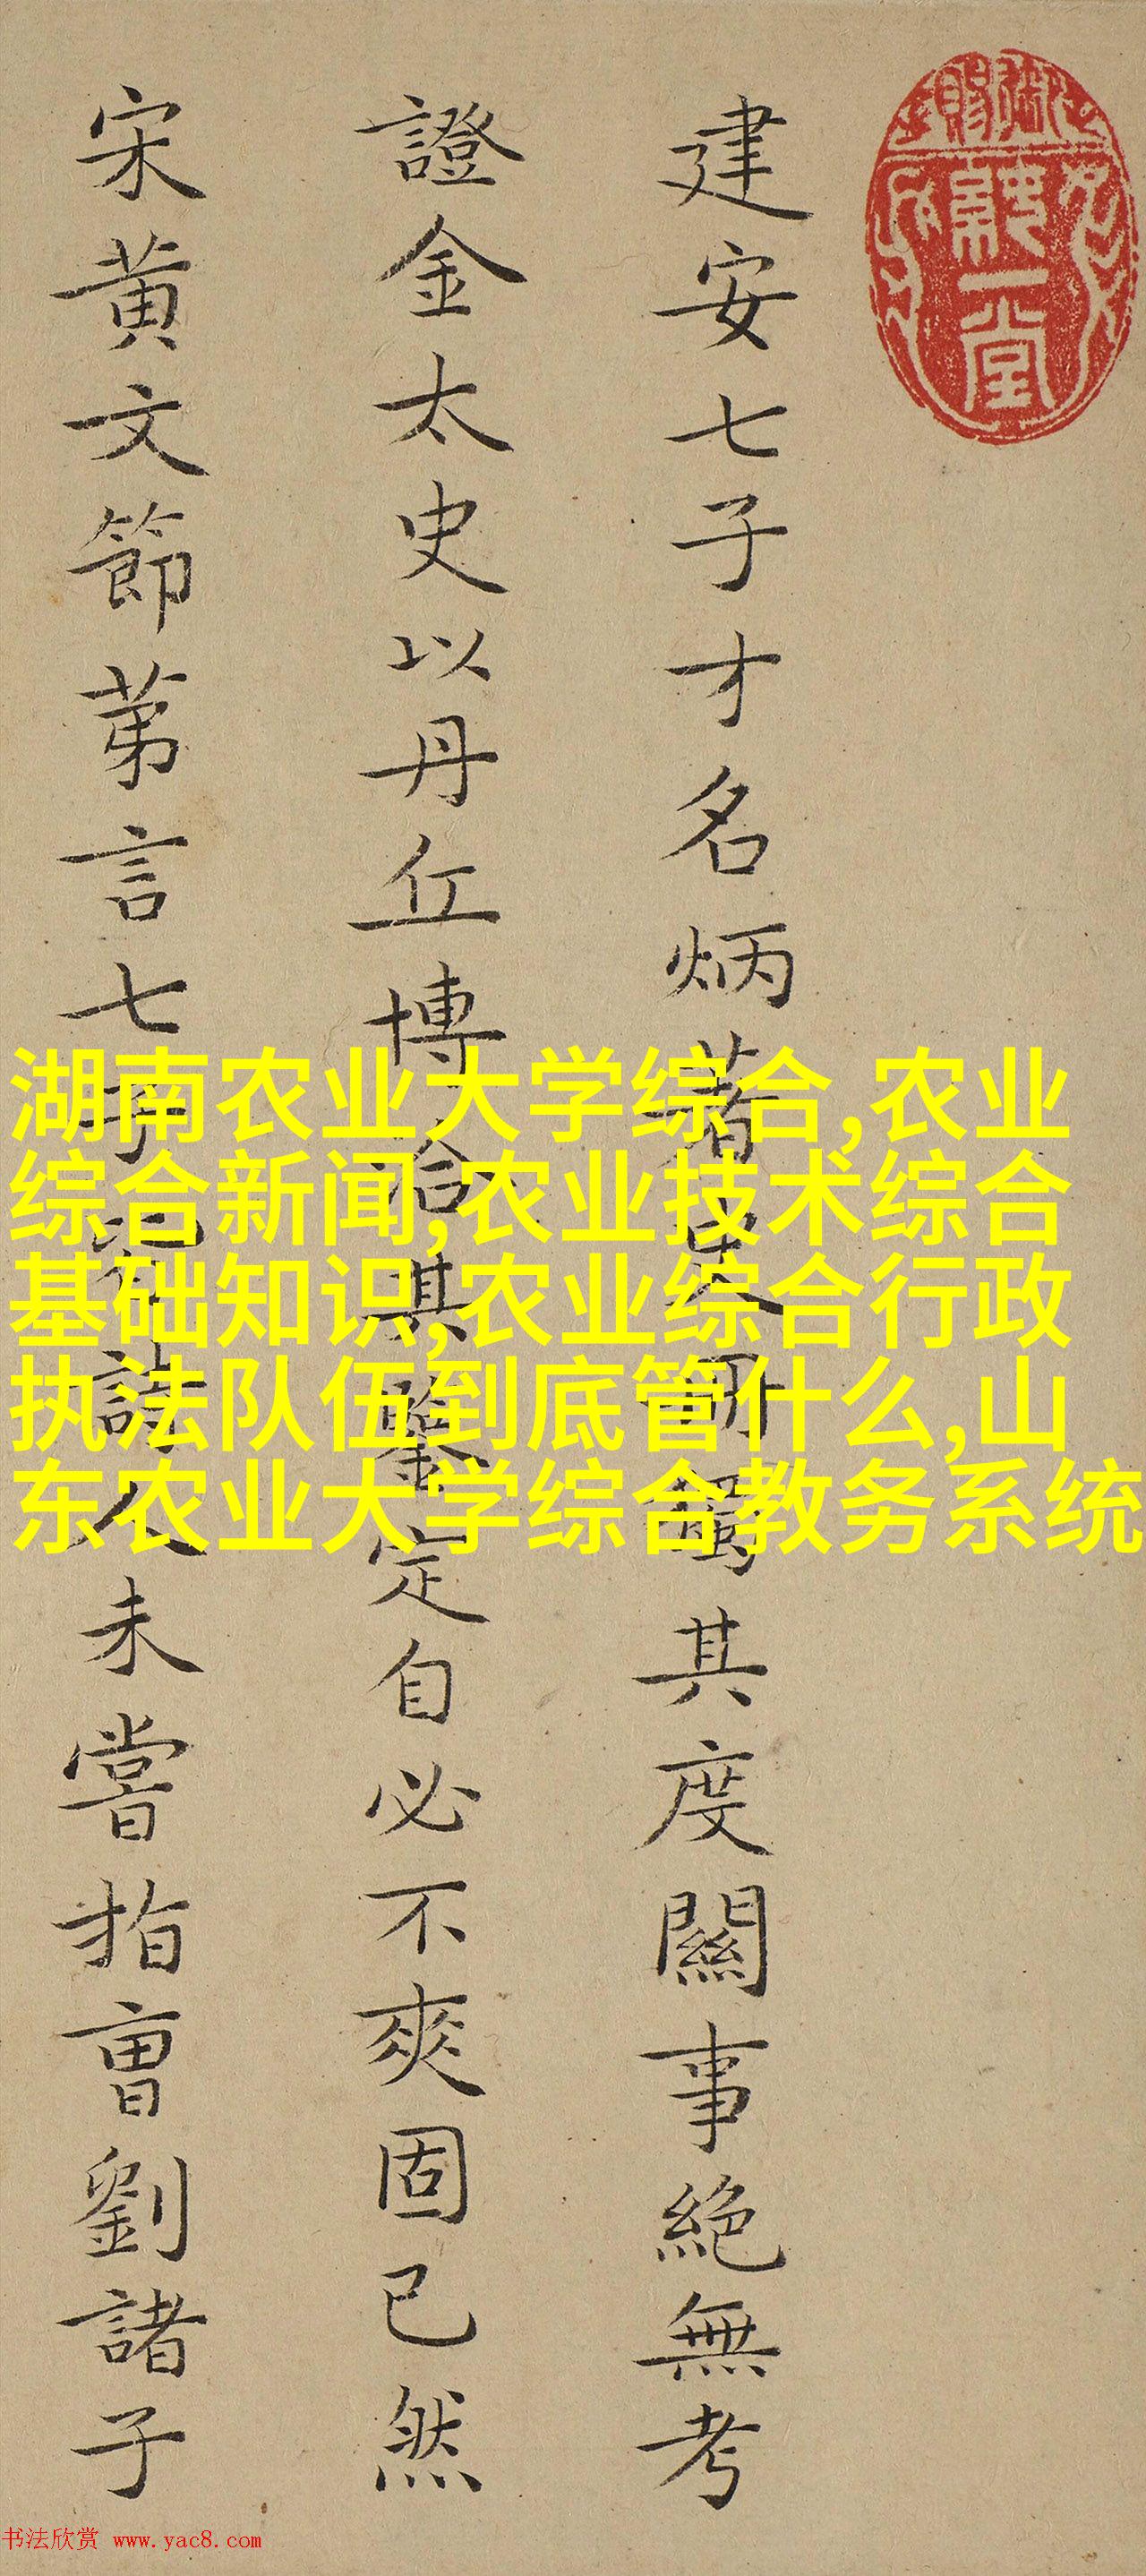 建安七子才名炳著史冊獨其度關事絕無考
證金太史以丹丘博洽其鑒定自必不爽固已然
宋黃文節苐言七子皆詩人未嘗指曹劉諸子
湖南农业大学综合,农业
综合新闻,农业技术综合
基础知识,农业综合行政
执法队伍,到底管什么,山
东农业大学综合教务系统
书法欣赏 www.yac8.com